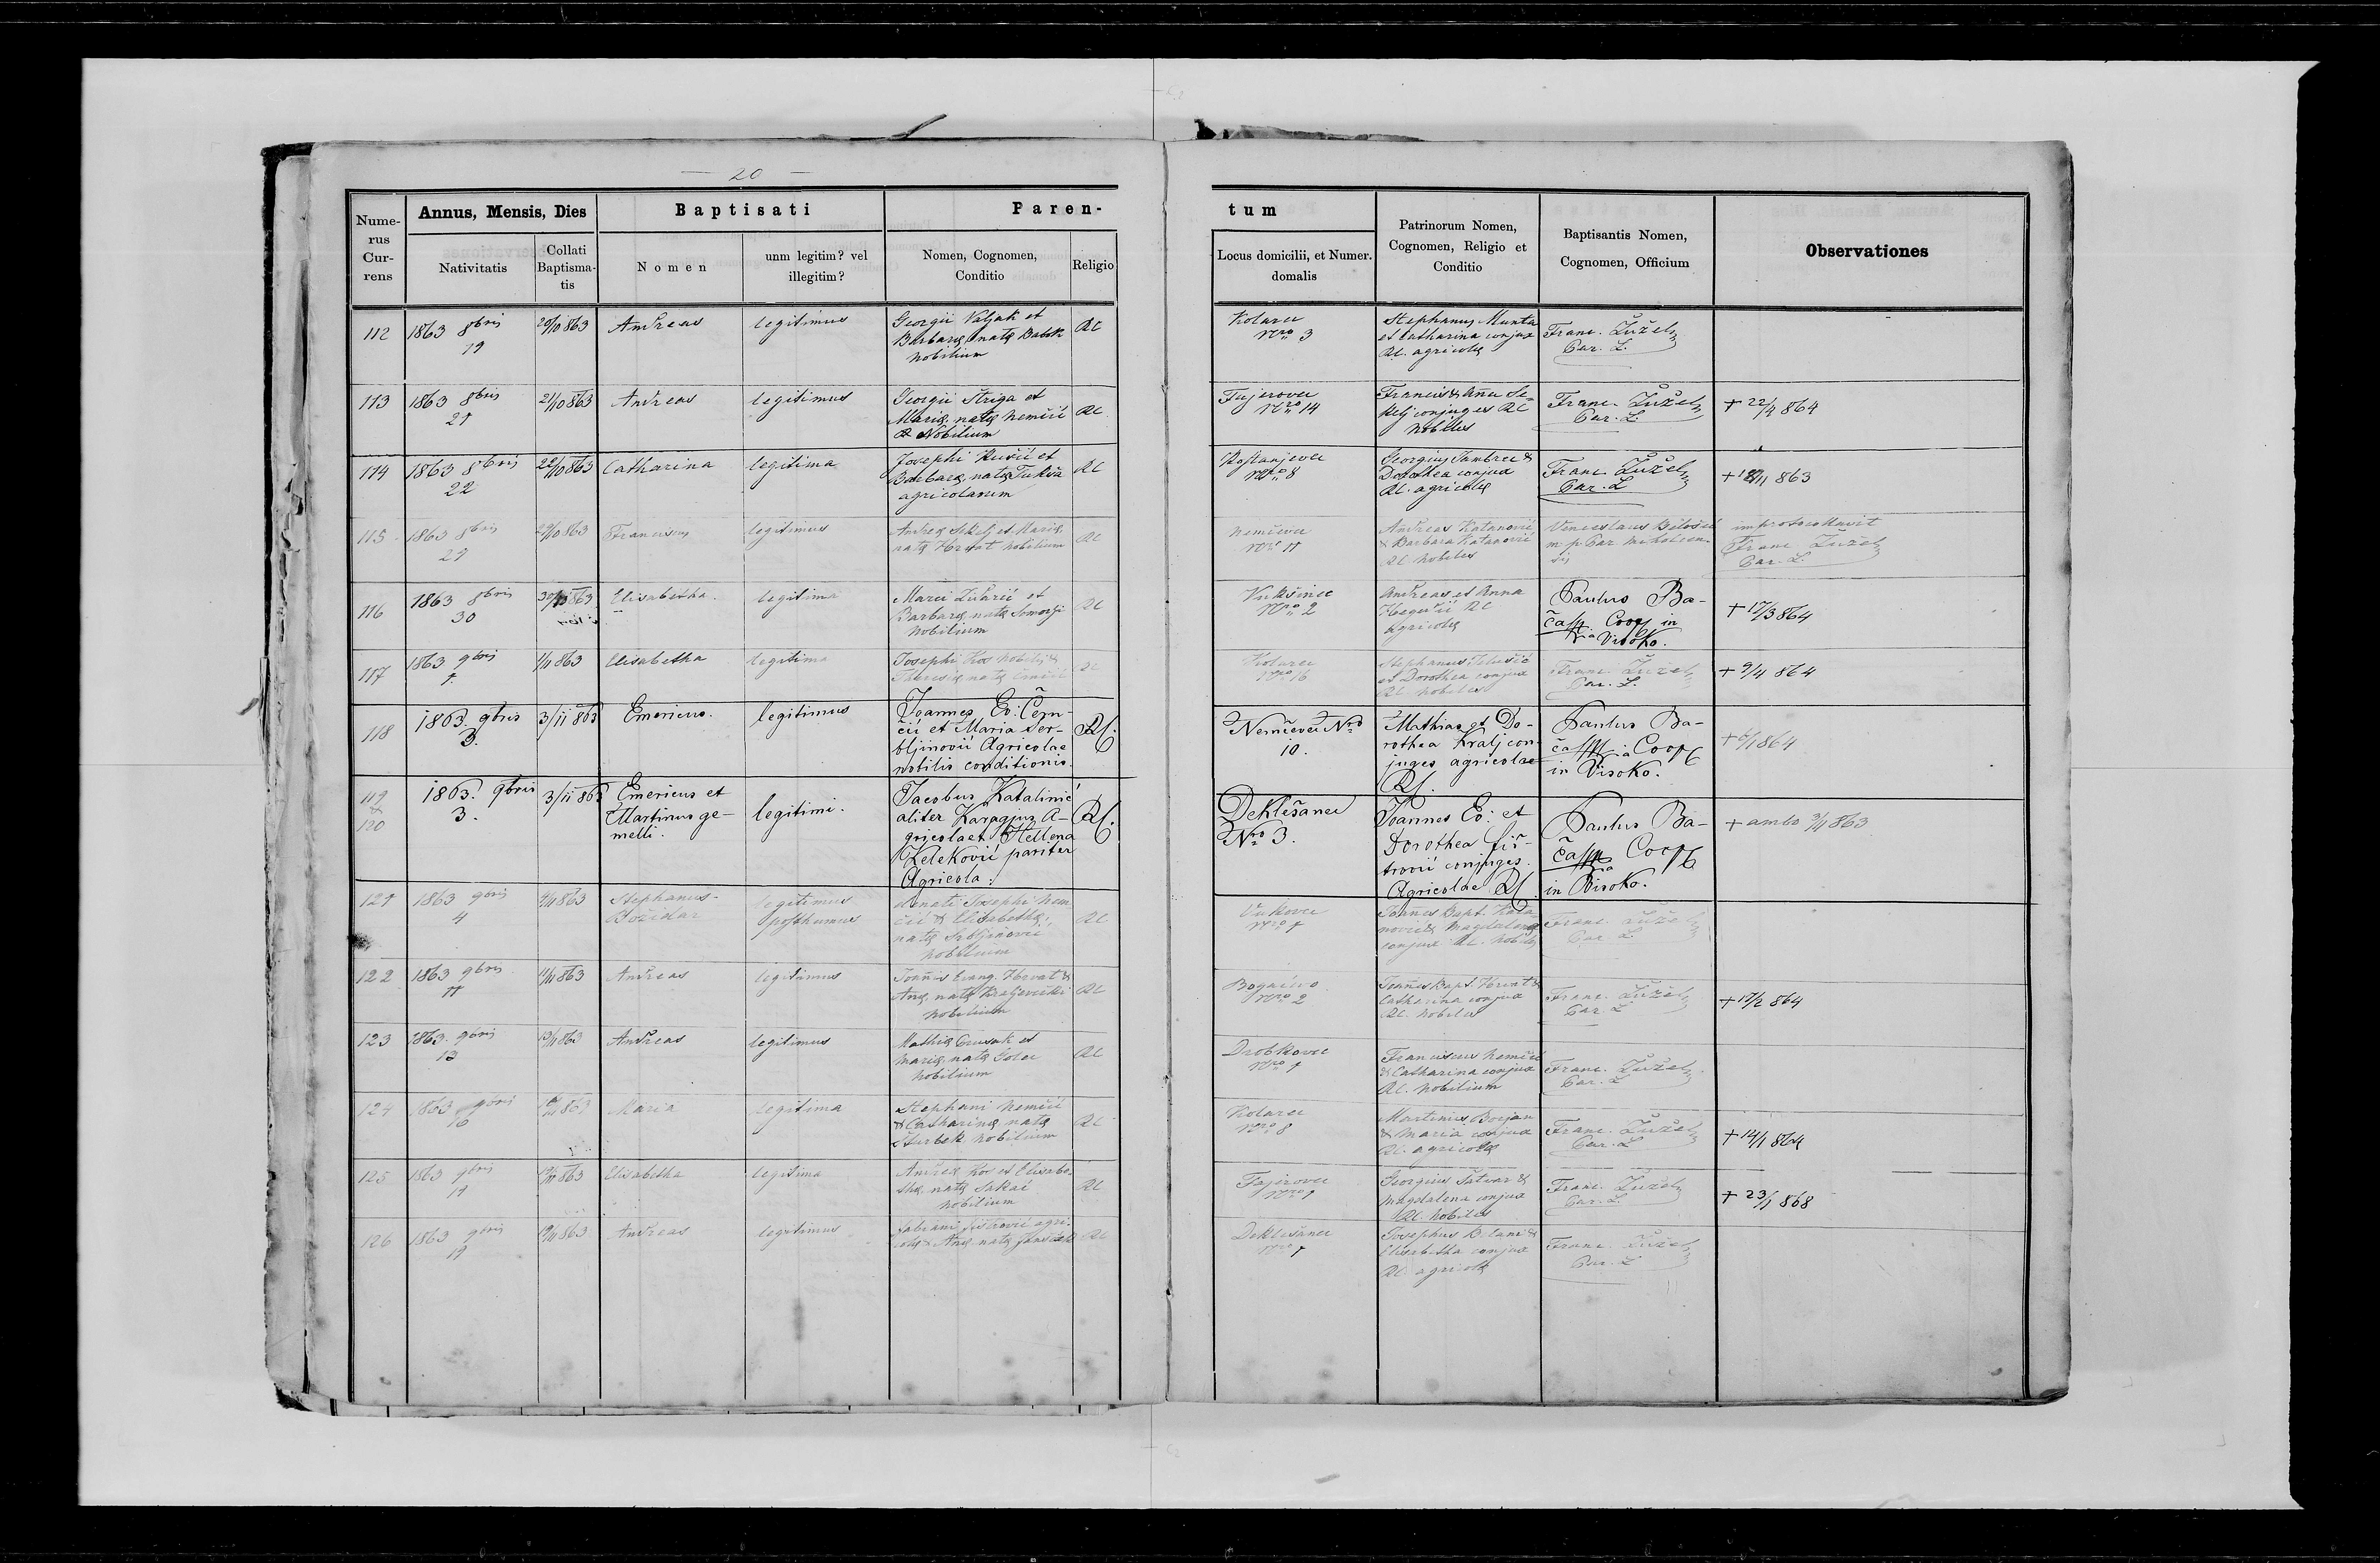 — 20 —
Nume-
rus
Cur-
rens
Annus, Mensis, Dies
Nativitatis
Collati
Baptisma-
tis
Baptisati
Nomen
unm legitim? vel
illegitim?
Paren-
Nomen, Cognomen,
Conditio
Religio
tum
Locus domicilii, et Numer.
domalis
Patrinorum Nomen,
Cognomen, Religio et
Conditio
Baptisantis Nomen,
Cognomen, Officium
Observationes
112
1863 8bris
19
20/10 863
Andreas
legitimus
Georgii Valjak et
Barbaræ natæ
Nobilium
RC
Kolarec
Nro 3
Stephanus Munta
et Catharina conjux
RC. agricolæ
Franc. Žužel
Par. L.
113
1863 8bris
21
21/10 863
Andreas
legitimus
Georgii Striga et
Mariæ natæ Nemčić
Nobilium
RC
Fajerovec
Nro 14
Francis & Anna Se-
kelj conjuges RC
Nobiles
Franc. Žužel
Par. L.
+ 22/4 864
114
1863 8bris
22
22/10 863
Catharina
legitima
Josephi et
Barbaræ natæ Tukša
agricolarum
RC
Kostanjevec
Nro 8
Georgius Jambrec &
Dorothea conjux
RC. agricolæ
Franc. Žužel
Par. L
+ /11 863
115
1863 8bris
29
29/10 863
Franciscus
legitimus
Andreæ Sekelj et Mariæ
natæ Horvat Nobilium
RC
Nemčevec
Nro 11
Andreas Katanović
& Barbara Katanović
RC Nobiles
Venceslaus
m. p. Par.
improtocollavit
Franc. Žužel
Par. L.
116
1863 8bris
30
30/10 863
Elisabetha.
legitima
Marci et
Barbaræ natæ
Nobilium
RC
Vukšinec
Nro 2
Andreas et Anna
RC
agricolæ
Paulus Ba-
Coop in
Visoko.
+ 17/3 864
117
1863 9bris
1.
1/11 863
Elisabetha
legitima
Josephi Kos Nobilis &
Theresiæ natæ
RC
Kolarec
Nro 16
Stephanus
et Dorothea conjux
RC. Nobiles
Franc. Žužel
Par. L.
+ 9/4 864
118
1863. 9bris
3.
3/11 863
Emericus.
legitimus
Joannes Ev: Čern-
čić et Maria Ser-
bljinović Agricolae
nobilis conditionis.
RC.
Nemčevec Nro
10.
Mathias et Do-
rothea Kralj con-
juges agricolae
RC.
Paulus Ba-
Coop
in Visoko.
119
&
120
1863. 9bris
3.
3/11 863
Emericus et
Martinus ge-
melli.
legitimi.
Jacobus Katalinić
aliter Karagjuz A-
gricola et Hellena
Keleković pariter
Agricola:
RC.
Deklešanec
Nro 3.
Joannes Ev: et
Dorothea Fiš-
trović conjuges.
Agricolae RC.
Paulus Ba-
Coop
in Visoko.
+ ambo 3/11 863
121
1863 9bris
4
4/11 863
Stephanus-
Božidar
legitimus
posthumus
donati Josephi Nem-
čić & Elisabethæ,
natæ Srbljinović
Nobilium
RC
Vukovec
Nro 1
Joannes Bapt. Kata-
nović & Magdalena
conjux RC. Nobiles
Franc. Žužel
Par. L.
122
1863 9bris
11
11/11 863
Andreas
legitimus
Joannis Evang. Horvat &
Anæ natæ Kraljevečki
Nobilium
RC
Bogačevo
Nro 2
Joannes Bapt. Horvat &
Catharina conjux
RC. Nobiles
Franc. Žužel
Par. L
+ 17/2 864
123
1863. 9bris
13
13/11 863
Andreas
legitimus
Mathiæ et
Mariæ natæ Golec
Nobilium
RC
Drobkovec
Nro 1
Franciscus Nemčić
& Catharina conjux
RC. Nobilium
Franc. Žužel
Par. L
124
1863 9bris
16
863
Maria
legitima
Stephani Nemčić
& Catharinæ natæ
Šturbek Nobilium
RC
Kolarec
Nro 8
Martinus Borjan
& Maria conjux
RC. agricolæ
Franc. Žužel
Par. L
+ 14/1 864
125
1863 9bris
19
19/11 863
Elisabetha
legitima
Andreæ Kos et Elisabe-
thæ natæ Sakač
Nobilium
RC
Fajerovec
Nro 9
Georgius Šatvar &
Magdalena conjux
RC. Nobiles
Franc. Žužel
Par. L.
+ 23/1 868
126
1863 9bris
19
19/11 863
Andreas
legitimus
Fabiani Fištrović agri-
colæ & Anæ natæ
RC
Deklešanec
Nro 7
Josephus &
Elisabetha conjux
RC. agricolæ
Franc. Žužel
Par. L